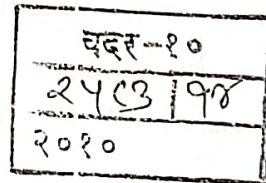 वदर-१०
२५८३ | १४
२०१०